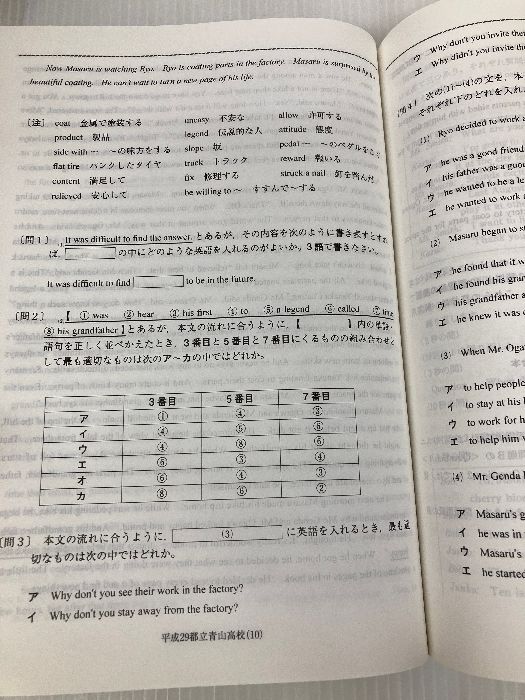 Now Masaru is watching Ryo. Ryo is coating parts in the factory. Masaru is surprised by
beautiful coating. He can't wait to turn a new page of his life.
〔注〕 coat 金属で塗装する uneasy 不安な allow 許可する
product 製品 legend 伝説的な人 attitude 態度
side with … …の味方をする slope 坂 pedal … …のペダルをこぐ
flat tire パンクしたタイヤ truck トラック reward 報いる
content 満足して fix 修理する struck a nail 釘を踏んだ
relieved 安心して be willing to ~ すすんで~する
〔問1〕 It was difficult to find the answer. とあるが、その内容を次のように書き表すとすれ
ば、 の中にどのような英語を入れるのがよいか。3語で書きなさい。
It was difficult to find to be in the future.
〔問2〕 【 ① was ② hear ③ his first ④ to ⑤ a legend ⑥ called ⑦ time
⑧ his grandfather 】とあるが、本文の流れに合うように、【 】内の単語・
語句を正しく並べかえたとき、3番目と5番目と7番目にくるものの組み合わせと
して最も適切なものは次のア~カの中ではどれか。
3番目 5番目 7番目
ア ① ④
イ ④ ⑤ ⑧
ウ ④ ⑧ ⑥
エ ⑥ ③ ④
オ ⑥ ④ ③
カ ⑧ ⑥ ②
〔問3〕 本文の流れに合うように、 (3) に英語を入れるとき、最も適
切なものは次の中ではどれか。
ア Why don't you see their work in the factory?
イ Why don't you stay away from the factory?
平成29都立青山高校(10)
ウ Why don't you invite
エ Why didn't you invite
〔問4〕 次の(1)~(4)の文を、本
それぞれ下のどれを入れ
(1) Ryo decided to work
ア he was a good friend
イ his father was a good
ウ he wanted to be a
エ he wanted to work
(2) Masaru began to
ア he found that it
イ he found his
ウ his grandfather
エ he knew it was
(3) When Mr.
ア to help people
イ to stay at his
ウ to work for
エ to help him
(4) Mr. Genda
ア Masaru's
イ he was in
ウ Masaru's
エ he started